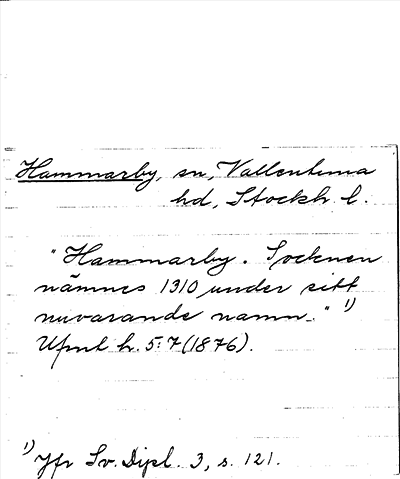 Hammarby, sn, Vallentuna
hd, Stockh. l.
"Hammarby. Socknen
nämnes 1310 under sitt
nuvarande namn." 1)
Ufmt h. 5: 7 (1876).
1) Jfr Sv. Dipl. 3, s. 121.